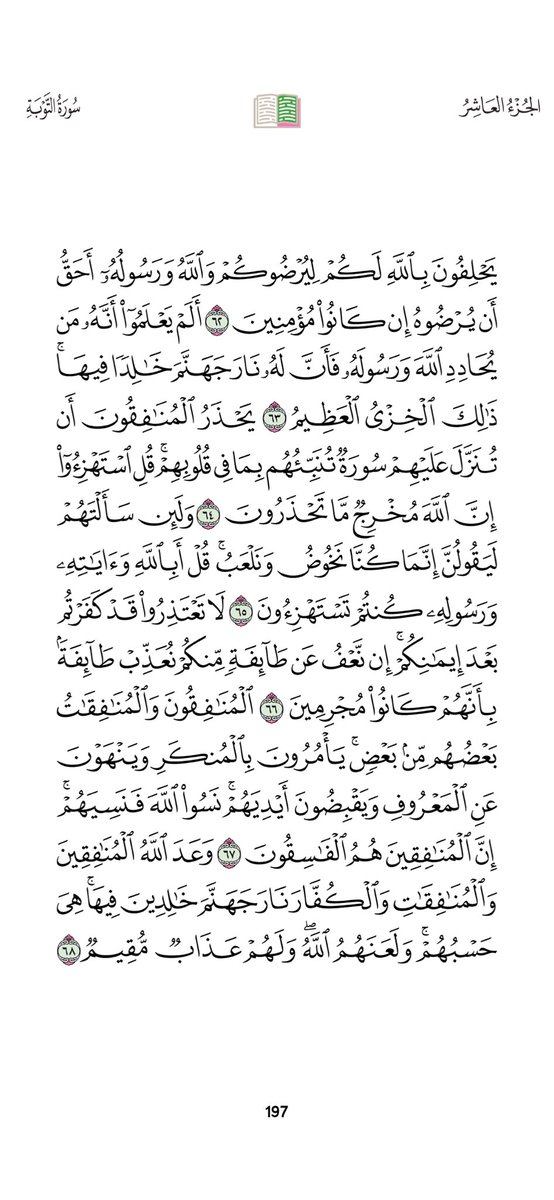 الجُزْءُ العَاشِرُ
سُورَةُ التَّوْبَةِ
يَحْلِفُونَ بِٱللَّهِ لَكُمْ لِيُرْضُوكُمْ وَٱللَّهُ وَرَسُولُهُۥٓ أَحَقُّ
أَن يُرْضُوهُ إِن كَانُوا۟ مُؤْمِنِينَ ٦٢ أَلَمْ يَعْلَمُوٓا۟ أَنَّهُۥ مَن
يُحَادِدِ ٱللَّهَ وَرَسُولَهُۥ فَأَنَّ لَهُۥ نَارَ جَهَنَّمَ خَـٰلِدًا فِيهَا ۚ
ذَٰلِكَ ٱلْخِزْىُ ٱلْعَظِيمُ ٦٣ يَحْذَرُ ٱلْمُنَـٰفِقُونَ أَن
تُنَزَّلَ عَلَيْهِمْ سُورَةٌ تُنَبِّئُهُم بِمَا فِى قُلُوبِهِمْ ۚ قُلِ ٱسْتَهْزِءُوٓا۟
إِنَّ ٱللَّهَ مُخْرِجٌ مَّا تَحْذَرُونَ ٦٤ وَلَئِن سَأَلْتَهُمْ
لَيَقُولُنَّ إِنَّمَا كُنَّا نَخُوضُ وَنَلْعَبُ ۚ قُلْ أَبِٱللَّهِ وَءَايَـٰتِهِۦ
وَرَسُولِهِۦ كُنتُمْ تَسْتَهْزِءُونَ ٦٥ لَا تَعْتَذِرُوا۟ قَدْ كَفَرْتُم
بَعْدَ إِيمَـٰنِكُمْ ۚ إِن نَّعْفُ عَن طَآئِفَةٍ مِّنكُمْ نُعَذِّبْ طَآئِفَةًۢ
بِأَنَّهُمْ كَانُوا۟ مُجْرِمِينَ ٦٦ ٱلْمُنَـٰفِقُونَ وَٱلْمُنَـٰفِقَـٰتُ
بَعْضُهُم مِّنۢ بَعْضٍ ۚ يَأْمُرُونَ بِٱلْمُنكَرِ وَيَنْهَوْنَ
عَنِ ٱلْمَعْرُوفِ وَيَقْبِضُونَ أَيْدِيَهُمْ ۚ نَسُوا۟ ٱللَّهَ فَنَسِيَهُمْ ۗ
إِنَّ ٱلْمُنَـٰفِقِينَ هُمُ ٱلْفَـٰسِقُونَ ٦٧ وَعَدَ ٱللَّهُ ٱلْمُنَـٰفِقِينَ
وَٱلْمُنَـٰفِقَـٰتِ وَٱلْكُفَّارَ نَارَ جَهَنَّمَ خَـٰلِدِينَ فِيهَا ۚ هِىَ
حَسْبُهُمْ ۚ وَلَعَنَهُمُ ٱللَّهُ ۖ وَلَهُمْ عَذَابٌ مُّقِيمٌ ٦٨
197